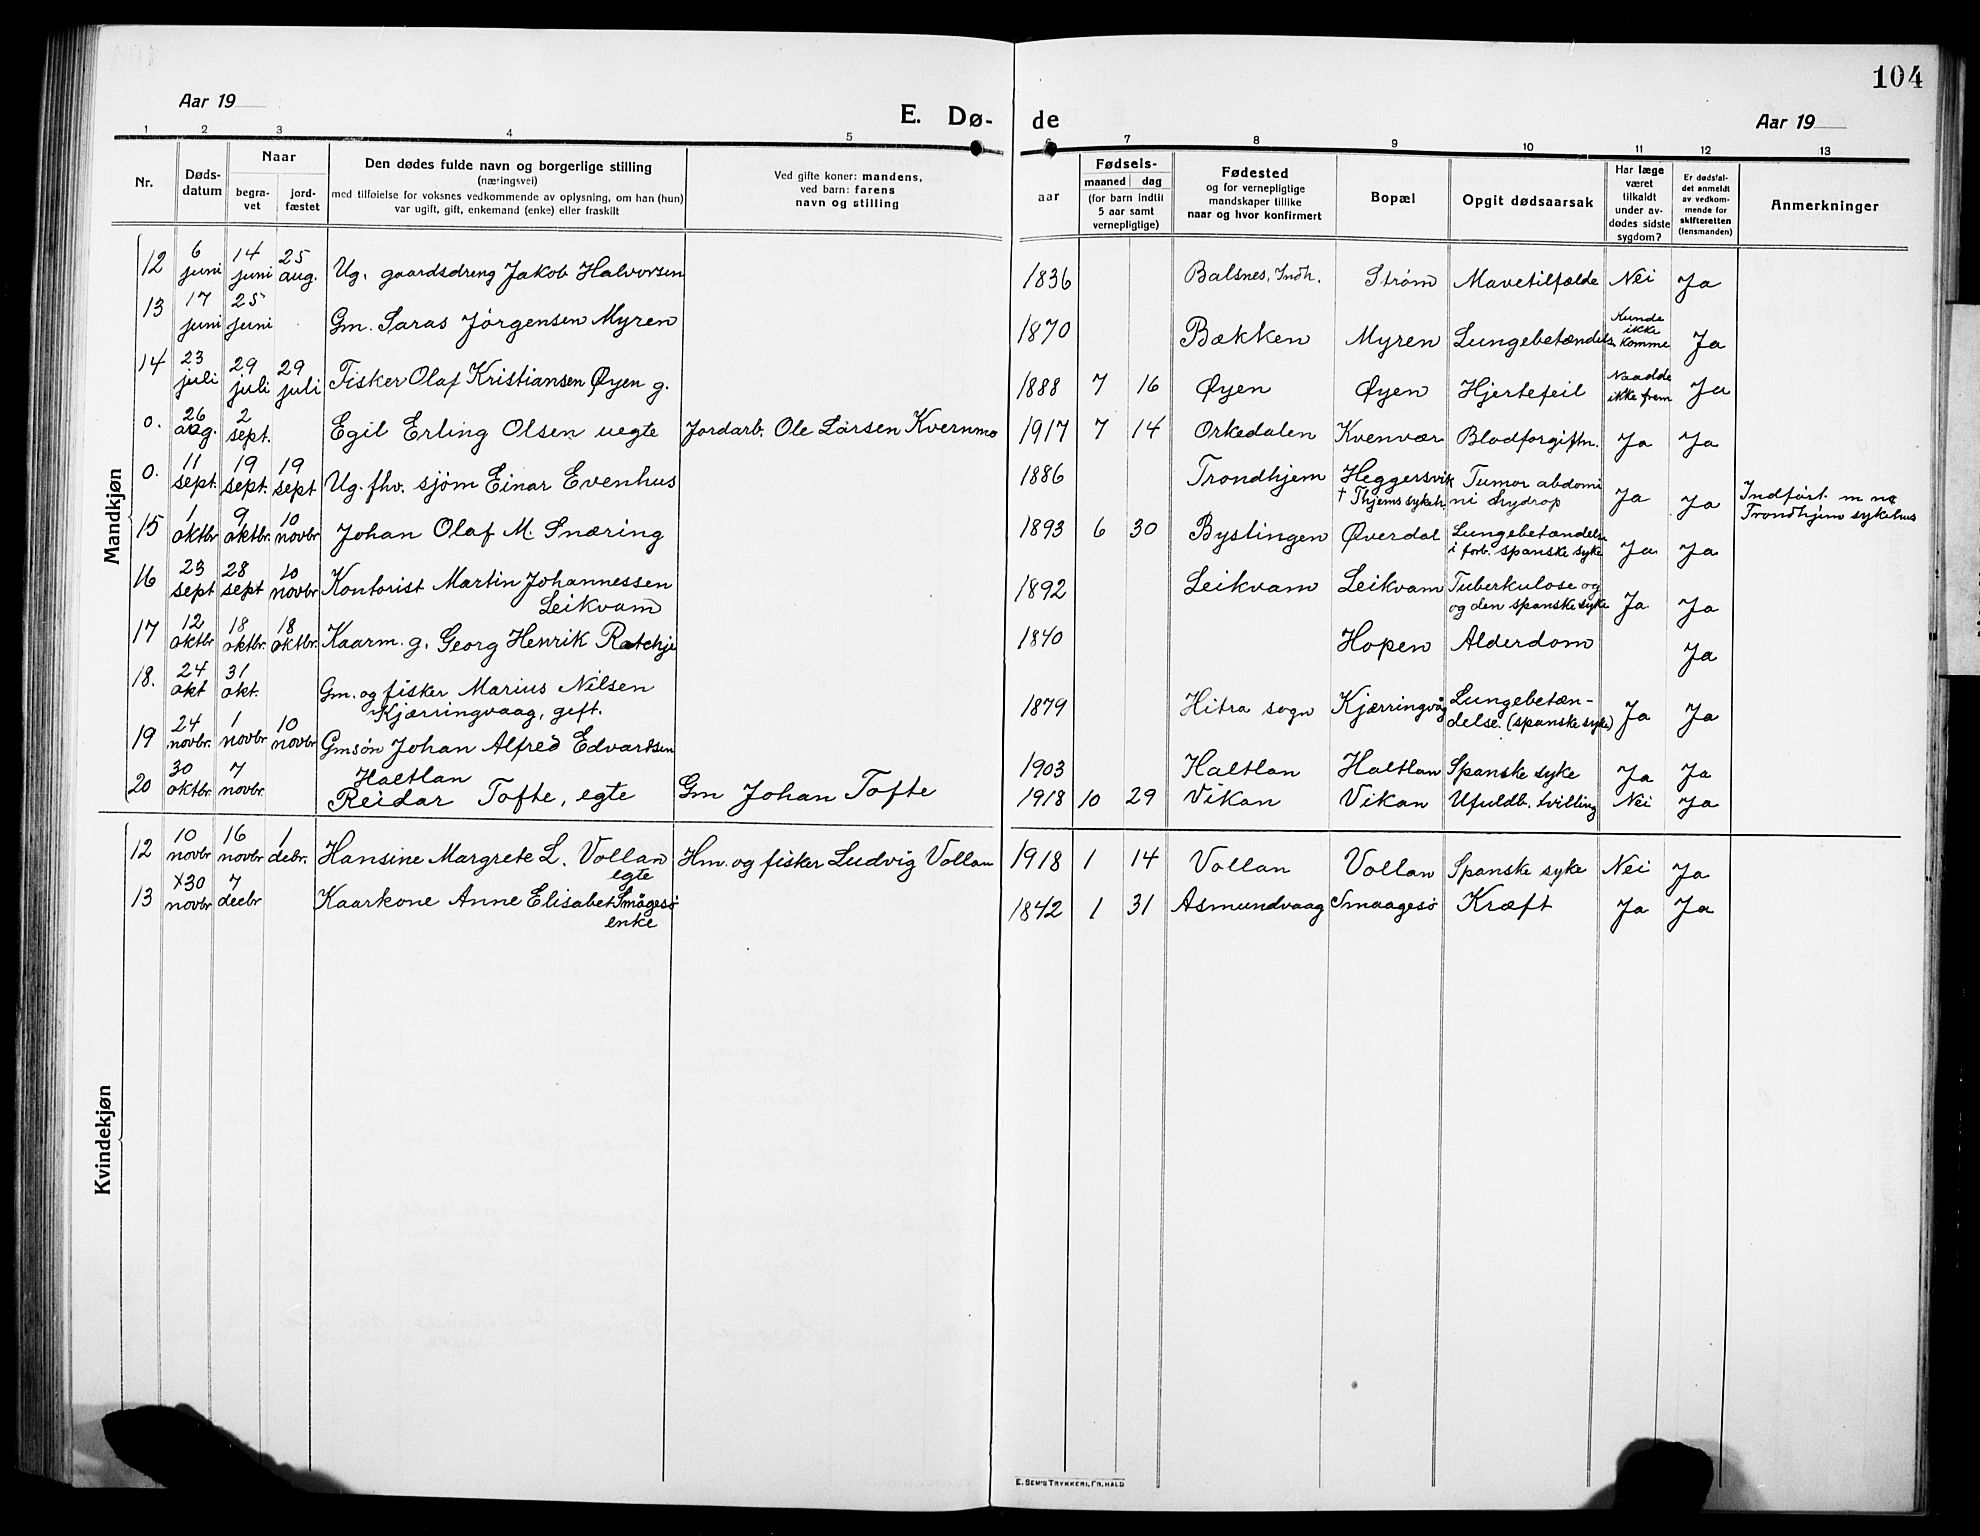 104
Aar 19
E. Dø- de
Aar 19
1 2 3 4 5 6 7 8 9 10 11 12 13
Nr.
Døds-
datum
Naar
begra-
vet
jord-
fæstet
Den dødes fulde navn og borgerlige stilling
(næringsvei)
med tilføielse for voksnes vedkommende av oplysning, om han (hun)
var ugift, gift, enkemand (enke) eller fraskilt
Ved gifte koner: mandens,
ved barn: farens
navn og stilling
Fødsels-
aar
maaned dag
(for barn indtil
5 aar samt
vernepligtige)
Fødested
og for vernepligtige
mandskaper tillike
naar og hvor konfirmert
Bopæl
Opgit dødsaarsak
Har læge
været
tilkaldt
under av-
dødes sidste
sygdom?
Er dødsfal-
det anmeldt
av vedkom-
mende for
skifteretten
(lensmanden)
Anmerkninger
Mandkjøn
12 6 juni 14 juni 25 aug. Ug. gaardsdreng Jakob Halvorsen 1836 Balsnes, Indh. Strøm Mavetilfælde Nei Ja
13 17 juni 25 juni Gm. Saras Jørgensen Myren 1870 Bækken Myren Lungebetændels. Kunde ikke komme Ja
14 23 juli 29 juli 29 juli Fisker Olaf Kristiansen Øyen g. 1888 7 16 Øyen Øyen Hjertefeil Naadde ikke frem Ja
0. 26 aug. 2 sept. Egil Erling Olsen uegte Jordarb. Ole Larsen Kvernmo 1917 7 14 Orkedalen Kvenvær Blodforgiftn. Ja Ja
0. 11 sept. 19 sept. 19 sept Ug. fhv. sjøm Einar Evenhus 1886 Trondhjem Heggersvik Tumor abdomi
† Thjems sykeh. ni hydrop Ja Ja Indført m no
Trondhjem sykehus
15 1 oktbr 9 oktbr. 10 novbr Johan Olaf M. Snæring 1893 6 30 Bystingen Øverdal Lungebetændelse
i forb. spanske syke Ja Ja
16 23 sept 28 sept 10 novbr Kontorist Martin Johannessen 1892 Leikvam Leikvam Tuberkulose og
Leikvam og den spanske syke Ja Ja
17 12 oktbr 18 oktbr. 18 oktbr. Kaarm. g. Georg Henrik Ratchje 1840 Hopen Alderdom Ja
18. 24 okt 31 okt. Gm. og fisker Marius Nilsen 1879 Hitra sogn Kjærringvåg Lungebetæn-
Kjærringvaag, gift. delse. (spanske syke) Ja Ja
19 24 novbr. 1 novbr 10 novbr Gmsøn Johan Alfred Edvardsen
Haltlan 1903 Haltlan Haltlan Spanske syke Ja Ja
20 30 oktbr 7 novbr. Reidar Tofte, egte Gm Johan Tofte 1918 10 29 Vikan Vikan Ufuldb. tvilling Nei Ja
Kvindekjøn
12 10 novbr 16 novbr 1 debr. Hansine Margrete L. Vollan Hm. og fisker Ludvig Vollan 1918 1 14 Vollan Vollan Spanske syke Nei Ja
egte
13 x30 novbr 7 decbr Kaarkone Anne Elisabet Smågesø 1842 1 31 Asmundvaag Smaagesø Kræft Ja Ja
enke
E. SEM'S TRYKKERI, FR.HALD